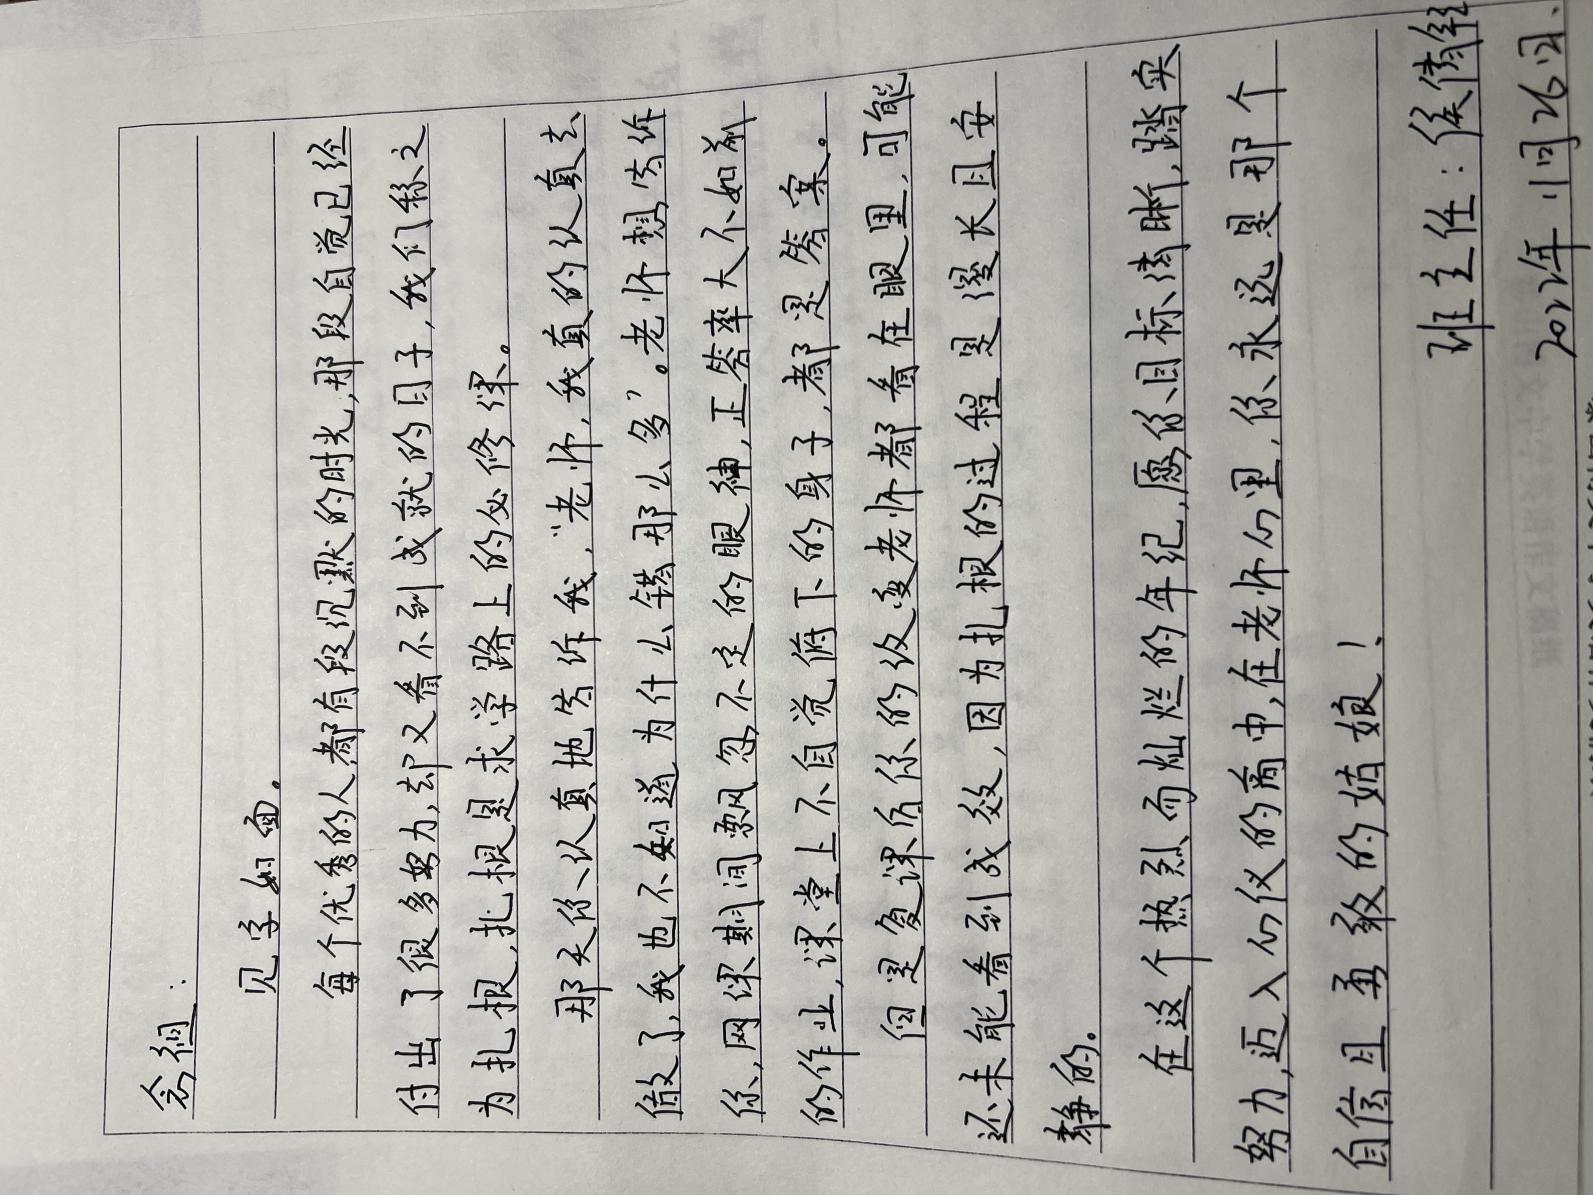 见字如面。
每个优秀的人,都有段沉默的时光,那段自觉已经
付出了很多努力,却又看不到成就的日子,我们称之
为扎根,扎根是求学路上的必修课。
那天你认真地告诉我,“老师,我真的认真去
做了,我也不知道为什么错那么多”。老师想告诉
你,网课期间飘忽不定的眼神,正答率大不如前
的作业,课堂上不自觉俯下的身子,都是答案。
但是复课后你的改变老师都看在眼里,可能
还未能看到成效,因为扎根的过程是漫长且安
静的。
在这个热烈而灿烂的年纪,愿你目标清晰,踏实
努力,迈入心仪的高中,在老师心里,你永远是那个
自信且勇敢的姑娘!
班主任:侯倩
2022年11月26日